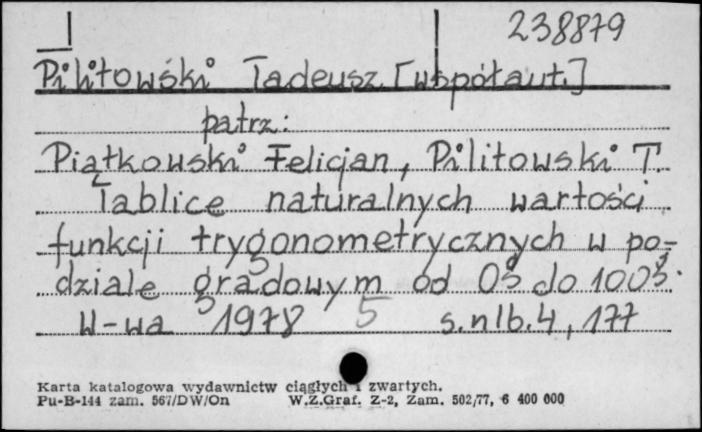 238879
Pilitowski Tadeusz [współaut.]
patrz:
Piątkowski Felicjan, Pilitowski T.
Tablice naturalnych wartości
funkcji trygonometrycznych w po-
dziale gradowym od 0g do 100g.
W-wa 1978 5 s.nlb.4, 177
Karta katalogowa wydawnictw ciągłych i zwartych.
Pu-B-144 zam. 567/DW/On W.Z.Graf. Z-2, Zam. 502/77, 6 400 000